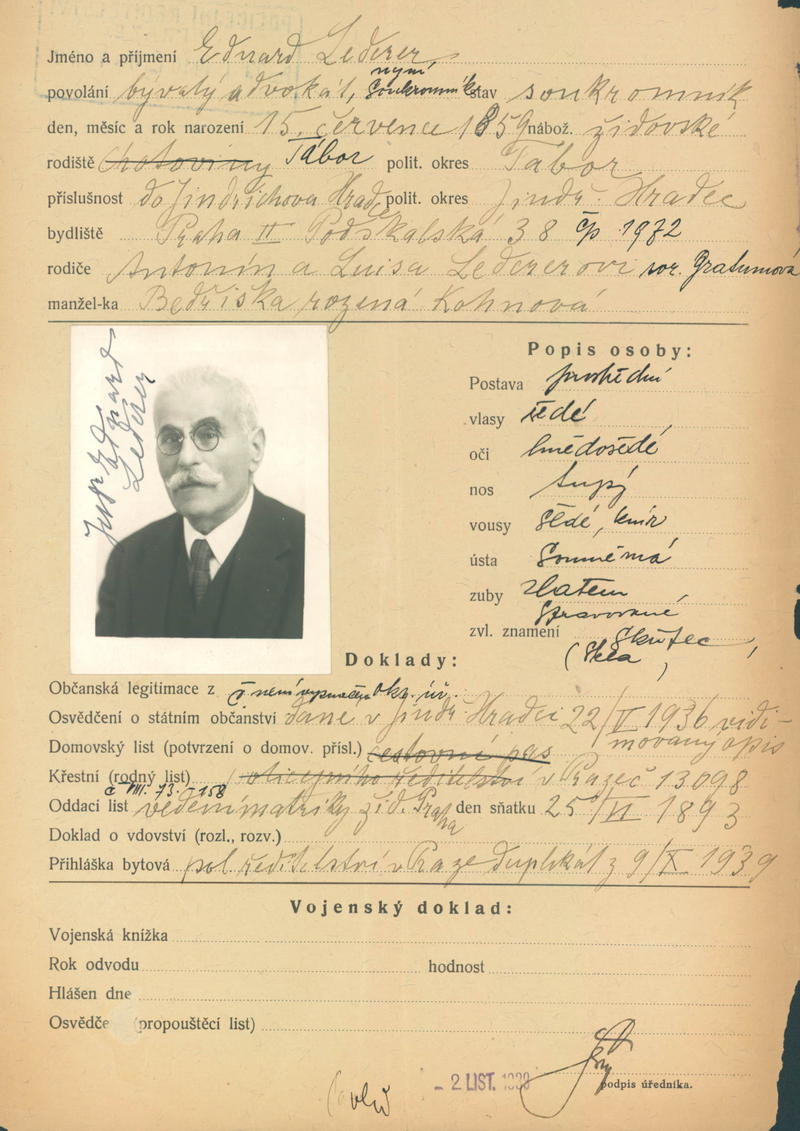 Jméno a příjmení Eduard Lederer,
nyní
povolání bývalý advokát, soukromník stav soukromník
den, měsíc a rok narození 15. července 1859 nábož. židovské
rodiště Chotoviny Tábor polit. okres Tábor
příslušnost do Jindřichova Hradce polit. okres Jindř. Hradec
bydliště Praha II Podskalská 38 čp 1972
rodiče Antonín a Luisa Ledererovi roz.
manžel-ka Bedřiška rozená Kohnová
JUDr Eduard
Lederer
Popis osoby:
Postava prostřední
vlasy šedé
oči hnědošedé
nos tupý
vousy šedé, knír
ústa souměrná
zuby zlatem
spravované
zvl. znamení skřipec,
(skla)
Doklady:
Občanská legitimace z okr. úř.
Osvědčení o státním občanství dané v Jindř. Hradci 22/V 1936 vidi-
Domovský list (potvrzení o domov. přísl.) cestovní pas movaný opis
Křestní (rodný list) policejního ředitelství v Praze č 13098
č VIII. 73. 158
Oddací list vedení matriky žid. Praha den sňatku 25/VI 1893
Doklad o vdovství (rozl., rozv.)
Přihláška bytová pol. ředitelství v Praze duplikát z 9/X 1939
Vojenský doklad:
Vojenská knížka
Rok odvodu hodnost
Hlášen dne
Osvědče (propouštěcí list)
- 2 LIST. 1939
podpis úředníka.